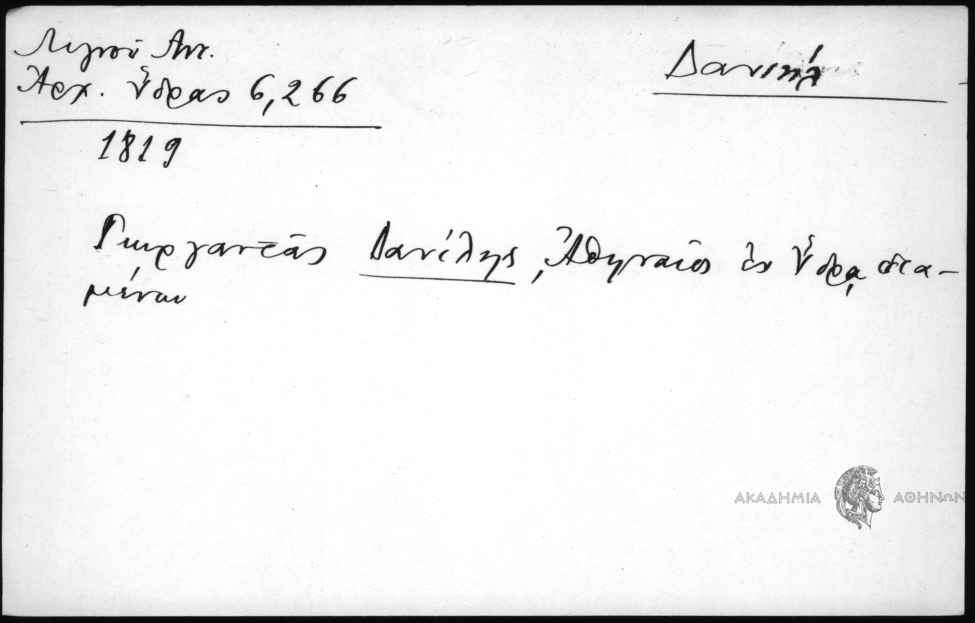 Λιγνοῦ Αντ.
Ἀρχ. Ὕδρας 6,266
Δανιήλ
1819
Γεωργαντᾶς Δανίλης, Ἀθηναῖος ἐν Ὕδρᾳ δια-
μένων
ΑΚΑΔΗΜΙΑ ΑΘΗΝΩΝ